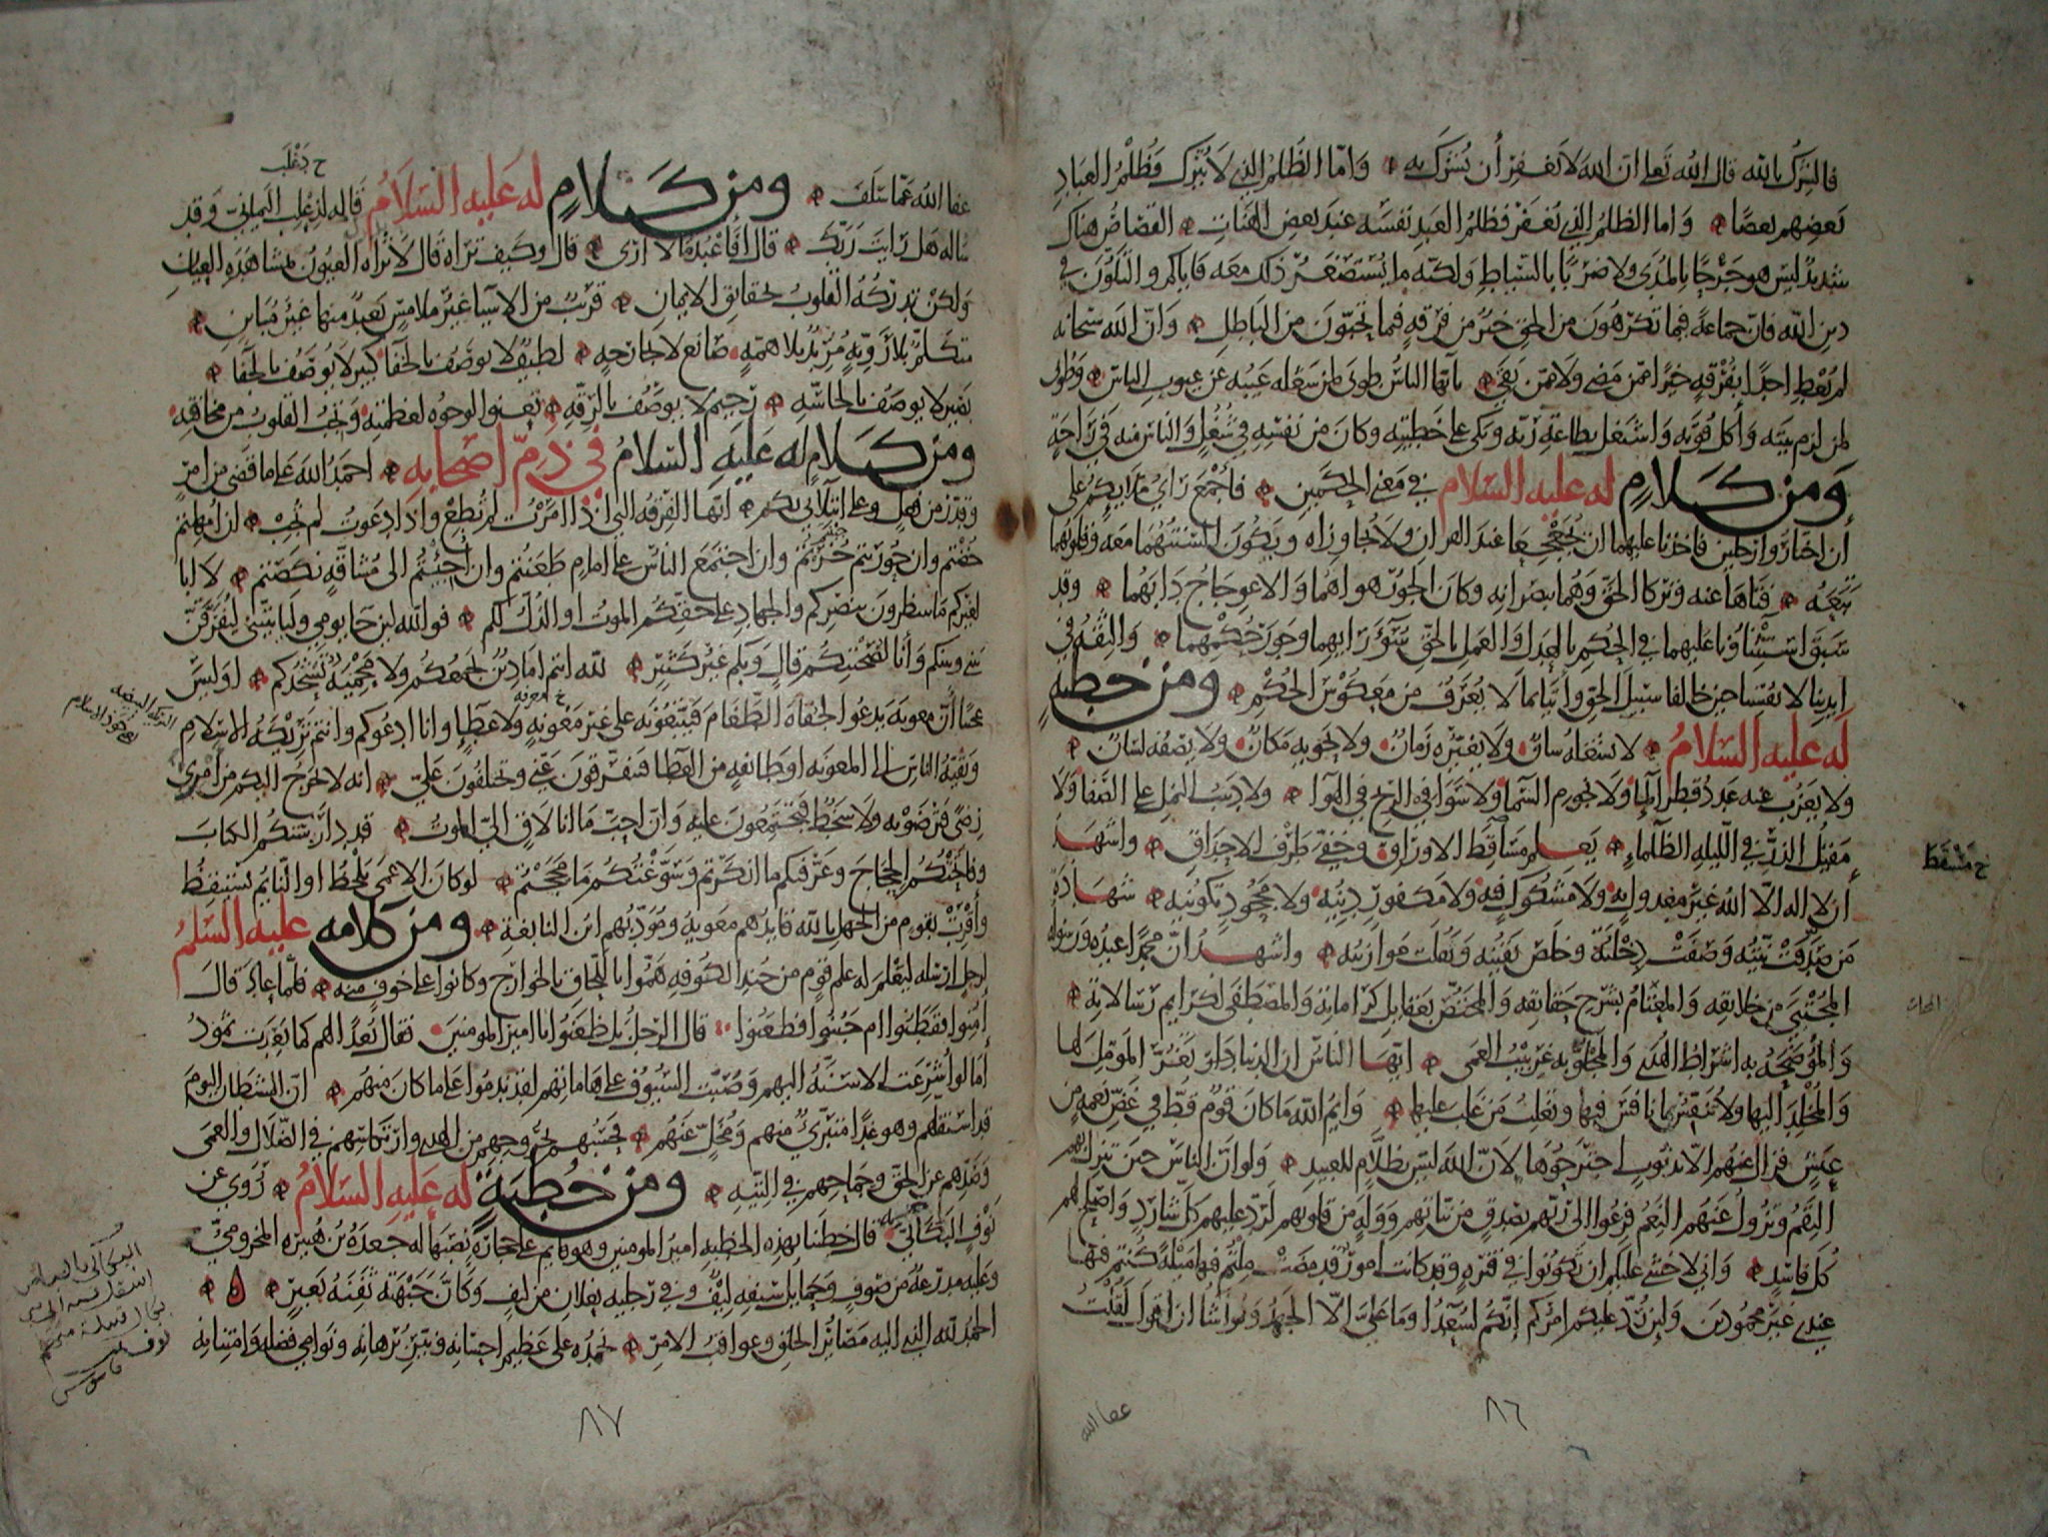 فالشرك بالله قال الله تعالى ان الله لا يغفر أن يشرك به واما الظلم الذي لا يترك فظلم العباد
بعضهم بعضا واما الظلم الذي يغفر فظلم العبد نفسه عند بعض الهنات القصاص هناك
شديد ليس هو جرحا بالمدى ولا ضربا بالسياط ولكنه ما يستصغر ذلك معه فاياكم والتلون في
دين الله فان جماعة فيما تكرهون من الحق خير من فرقة فيما تحبون من الباطل وان الله سبحانه
لم يعط احدا بفرقة خيرا ممن مضى ولا ممن بقي يا ايها الناس طوبى لمن شغله عيبه عن عيوب الناس وطوبى
لمن لزم بيته وأكل قوته واشتغل بطاعة ربه وبكى على خطيئته وكان من نفسه في شغل والناس منه في راحة
ومن كلام له عليه السلام في معنى الحكمين فأجمع رأي ملائكم على
أن اختاروا رجلين فاخذنا عليهما ان يجعجعا عند القران ولا يجاوزاه ويكون السنتهما معه وقلوبهما
تبعه فتاها عنه وتركا الحق وهما يبصرانه وكان الجور هواهما والاعوجاج دابهما وقد
سبق استثناؤنا عليهما في الحكم بالعدل والعمل بالحق سوء رايهما وجور حكمهما والثقة في
ايدينا لانفسنا حين خالفا سبيل الحق وأتيا بما لا يعرف من معكوس الحكم ومن خطبة
له عليه السلام لا يشغله شان ولا يغيره زمان ولا يحويه مكان ولا يصفه لسان
ولا يعزب عنه عدد قطر الماء ولا نجوم السما ولا سوافي الريح في الهوا ولا دبيب النمل على الصفا ولا
مقيل الذر في الليلة الظلماء يعلم مساقط الاوراق وخفي طرف الاحداق واشهد
ح مسقط
أن لا اله الا الله غير معدول به ولا مشكوك فيه ولا مكفور دينه ولا مجحود تكوينه شهادة
من صدقت نيته وصفت دخلته وخلص يقينه وثقلت موازينه واشهد ان محمدا عبده ورسوله
المجتبى من خلايقه والمعتام بشرح حقائقه والمختص بعقايل كراماته والمصطفى لكرايم رسالاته
والموضحة به اشراط الهدى والمجلو به غربيب العمى ايها الناس ان الدنيا دار تغر المومل لها
والمخلد اليها ولا تنفس بمن نافس فيها وتغلب من غلب عليها وايم الله ما كان قوم قط في غض نعمة من
عيش فزال عنهم الا بذنوب اجترحوها لان الله ليس بظلام للعبيد ولو ان الناس حين تنزل بهم
النقم وتزول عنهم النعم فزعوا الى ربهم بصدق من نياتهم ووله من قلوبهم لرد عليهم كل شارد واصلح لهم
كل فاسد واني لاخشى عليكم ان تكونوا في فترة وقد كانت امور قد مضت ملتم فيها ميلة كنتم فيها
عندي غير محمودين ولئن رد عليكم امركم إنكم لسعدا وما علي الا الجهد ولو أشا ان اقول لقلت
عفا الله
٨٦
عفا الله عما سلف ومن كلام له عليه السلام قاله لذعلب اليماني وقد
ساله هل رايت ربك قال أفأعبد ما لا ارى قال وكيف تراه قال لا تراه العيون بمشاهدة العيان
ولكن تدركه القلوب بحقائق الايمان قريب من الاشيا غير ملامس بعيد منها غير مباين
متكلم بلا روية مريد بلا همة صانع لا بجارحة لطيف لا يوصف بالخفا كبير لا يوصف بالجفا
بصير لا يوصف بالحاسة رحيم لا يوصف بالرقة تعنو الوجوه لعظمته وتجب القلوب من مخافته
ومن كلام له عليه السلام في ذم اصحابه احمد الله على ما قضى من امر
وقدر من فعل وعلى ابتلائي بكم ايتها الفرقة التي اذا امرت لم تطع واذا دعوت لم تجب ان امهلتم
خضتم وان حوربتم خرتم وان اجتمع الناس على امام طعنتم وان اجئتم الى مشاقة نكصتم لا ابا
لغيركم ما تنتظرون بنصركم والجهاد على حقكم الموت او الذل لكم فوالله لئن جا يومي وليأتيني ليفرقن
بيني وبينكم وأنا لصحبتكم قال وبكم غير كثير لله انتم اما دين يجمعكم ولا محمية تشحذكم اوليس
عجبا أن معوية يدعوا الجفاة الطغام فيتبعونه على غير معونة ولا عطا وانا ادعوكم وانتم تريكة الاسلام
وبقية الناس الى المعونة او طائفة من العطا فتفرقون عني وتختلفون علي انه لا يخرج اليكم من امري
رضى فترضونه ولا سخط فتجتمعون عليه وان احب ما انا لاق الي الموت قد دارستكم الكتاب
وفاتحتكم الحجاج وعرفتكم ما انكرتم وسوغتكم ما مججتم لو كان الاعمى يلحظ او النائم يستيقظ
وأقرب بقوم من الجهل بالله قايدهم معوية ومؤدبهم ابن النابغة ومن كلامه عليه السلم
لرجل ارسله ليعلم له علم قوم من جند الكوفة هموا باللحاق بالخوارج وكانوا على خوف منه فلما عاد قال
أمنوا فقطنوا ام جبنوا فظعنوا قال الرجل بل ظعنوا يا امير المومنين فقال بعدا لهم كما بعدت ثمود
أما لو أشرعت الاسنة اليهم وصبت السيوف على هاماتهم لقد ندموا على ما كان منهم ان الشيطان اليوم
قد استفلهم وهو غدا متبرئ منهم ومخل عنهم فحسبهم بخروجهم من الهدى وارتكاسهم في الضلال والعمى
وصدهم عن الحق وجماحهم في التيه ومن خطبة له عليه السلام روي عن
نوف البكالي قال خطبنا بهذه الخطبة امير المومنين وهو قايم على حجارة نصبها له جعدة بن هبيرة المخزومي
وعليه مدرعة من صوف وحمايل سيفه ليف وفي رجليه نعلان من ليف وكان جبهته ثفنة بعير
الحمد لله الذي اليه مصائر الخلق وعواقب الامر نحمده على عظيم احسانه ونير برهانه ونوامي فضله وامتنانه
٨٧